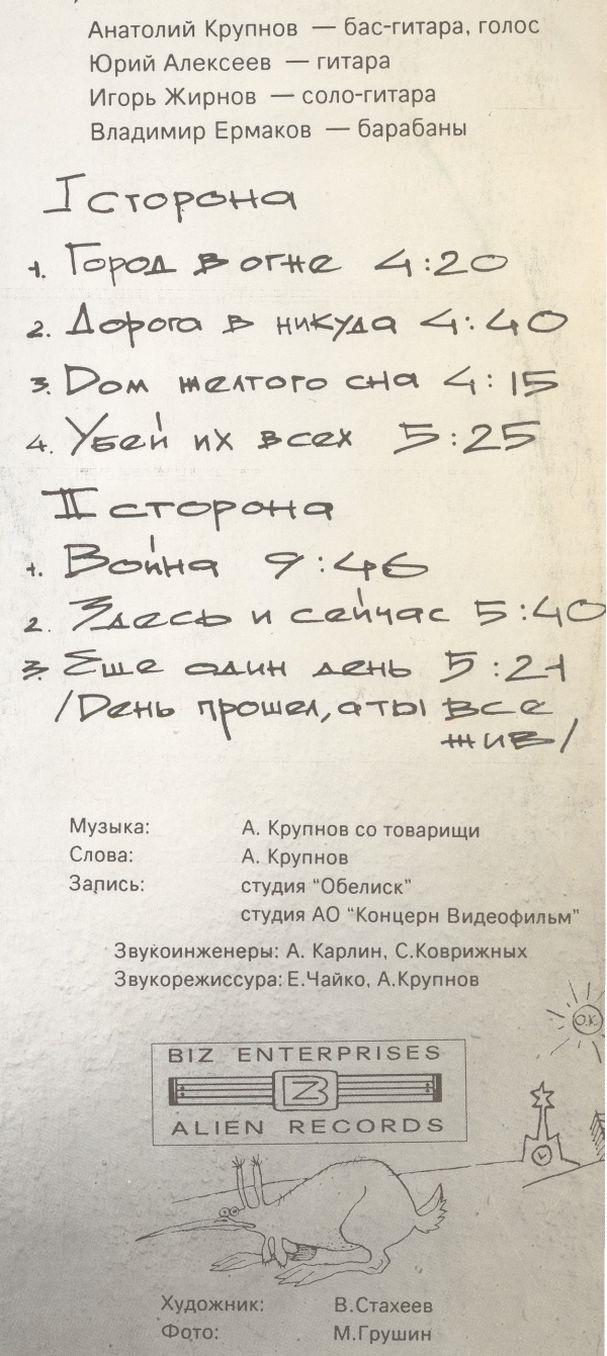 Анатолий Крупнов — бас-гитара, голос
Юрий Алексеев — гитара
Игорь Жирнов — соло-гитара
Владимир Ермаков — барабаны
I сторона
1. Город в огне 4:20
2. Дорога в никуда 4:40
3. Дом желтого сна 4:15
4. Убей их всех 5:25
II сторона
1. Война 9:46
2. Здесь и сейчас 5:40
3. Еще один день 5:21
/День прошел, а ты все
жив/
Музыка: А. Крупнов со товарищи
Слова: А. Крупнов
Запись: студия "Обелиск"
студия АО "Концерн Видеофильм"
Звукоинженеры: А. Карлин, С.Коврижных
Звукорежиссура: Е.Чайко, А.Крупнов
O.K.
BIZ ENTERPRISES
B
ALIEN RECORDS
Художник: В.Стахеев
Фото: М.Грушин